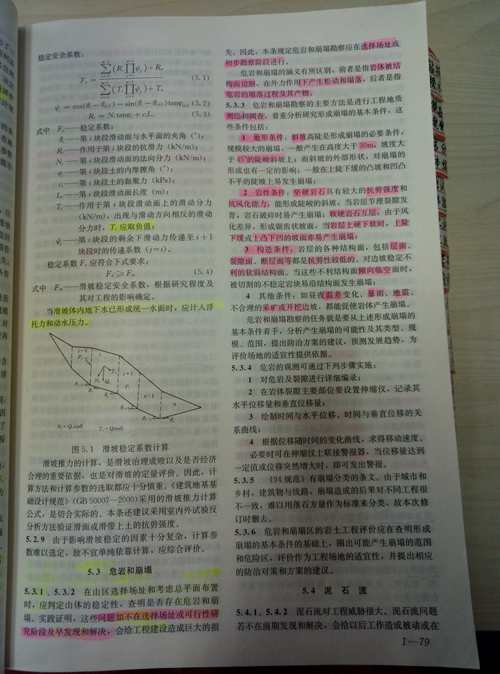 稳定安全系数:
式中 Fs——稳定系数;
θi——第i块段滑动面与水平面的夹角(°);
Ri——作用于第i块段的抗滑力(kN/m);
Ni——第i块段滑动面的法向分力(kN/m);
φi——第i块段土的内摩擦角(°);
ci——第i块段土的黏聚力(kPa);
Li——第i块段滑动面长度(m);
Ti——作用于第i块段滑动面上的滑动分力
(kN/m),出现与滑动方向相反的滑动
分力时,Ti应取负值;
ψj——第i块段的剩余下滑动力传递至i+1
块段时的传递系数(j=i)。
稳定系数Fs应符合下式要求:
Fs≥Fst (5.4)
式中 Fst——滑坡稳定安全系数,根据研究程度及
其对工程的影响确定。
当滑坡体内地下水已形成统一水面时,应计入浮
托力和动水压力。
图5.1 滑坡稳定系数计算
滑坡推力的计算,是滑坡治理成败以及是否经济
合理的重要依据,也是对滑坡的定量评价。因此,计
算方法和计算参数的选取都应十分慎重。《建筑地基基
础设计规范》(GB 50007—2000)采用的滑坡推力计算
公式,是切合实际的。本条还建议采用室内外试验反
分析方法验证滑面或滑带上土的抗剪强度。
5.2.9 由于影响滑坡稳定的因素十分复杂,计算参
数难以选定,故不宜单纯依靠计算,应综合评价。
5.3 危岩和崩塌
5.3.1、5.3.2 在山区选择场址和考虑总平面布置
时,应判定山体的稳定性,查明是否存在危岩和崩
塌。实践证明,这些问题如不在选择场址或可行性研
究阶段及早发现和解决,会给工程建设造成巨大的损
失。因此,本条规定危岩和崩塌勘察应在选择场址或
初步勘察阶段进行。
危岩和崩塌的涵义有所区别,前者是指岩体被结
构面切割,在外力作用下产生松动和塌落,后者是指
危岩的塌落过程及其产物。
5.3.3 危岩和崩塌勘察的主要方法是进行工程地质
测绘和调查,着重分析研究形成崩塌的基本条件,这
些条件包括:
1 地形条件:斜坡高陡是形成崩塌的必要条件,
规模较大的崩塌,一般产生在高度大于30m,坡度大
于45°的陡峻斜坡上;而斜坡的外部形状,对崩塌的
形成也有一定的影响;一般在上陡下缓的凸坡和凹凸
不平的陡坡上易发生崩塌;
2 岩性条件:坚硬岩石具有较大的抗剪强度和
抗风化能力,能形成陡峻的斜坡,当岩层节理裂隙发
育,岩石破碎时易产生崩塌;软硬岩石互层,由于风
化差异,形成锯齿状坡面,当岩层上硬下软时,上陡
下缓或上凸下凹的坡面亦易产生崩塌;
3 构造条件:岩层的各种结构面,包括层面、
裂隙面、断层面等都是抗剪性较低的、对边坡稳定不
利的软弱结构面。当这些不利结构面倾向临空面时,
被切割的不稳定岩块易沿结构面发生崩塌;
4 其他条件:如昼夜温差变化、暴雨、地震、
不合理的采矿或开挖边坡,都能促使岩体产生崩塌。
危岩和崩塌勘察的任务就是要从上述形成崩塌的
基本条件着手,分析产生崩塌的可能性及其类型、规
模、范围,提出防治方案的建议,预测发展趋势,为
评价场地的适宜性提供依据。
5.3.4 危岩的观测可通过下列步骤实施:
1 对危岩及裂隙进行详细编录;
2 在岩体裂隙主要部位要设置伸缩仪,记录其
水平位移量和垂直位移量;
3 绘制时间与水平位移、时间与垂直位移的关
系曲线;
4 根据位移随时间的变化曲线,求得移动速度。
必要时可在伸缩仪上联接警报器,当位移量达到
一定值或位移突然增大时,即可发出警报。
5.3.5 《94规范》有崩塌分类的条文。由于城市和
乡村,建筑物与线路,崩塌造成的后果对不同工程很
不一致,难以用落石方量作为标准来分类,故本次修
订时删去。
5.3.6 危岩和崩塌区的岩土工程评价应在查明形成
崩塌的基本条件的基础上,圈出可能产生崩塌的范围
和危险区,评价作为工程场地的适宜性,并提出相应
的防治对策和方案的建议。
5.4 泥石流
5.4.1、5.4.2 泥石流对工程威胁很大。泥石流问题
若不在前期发现和解决,会给以后工作造成被动或在
1—79